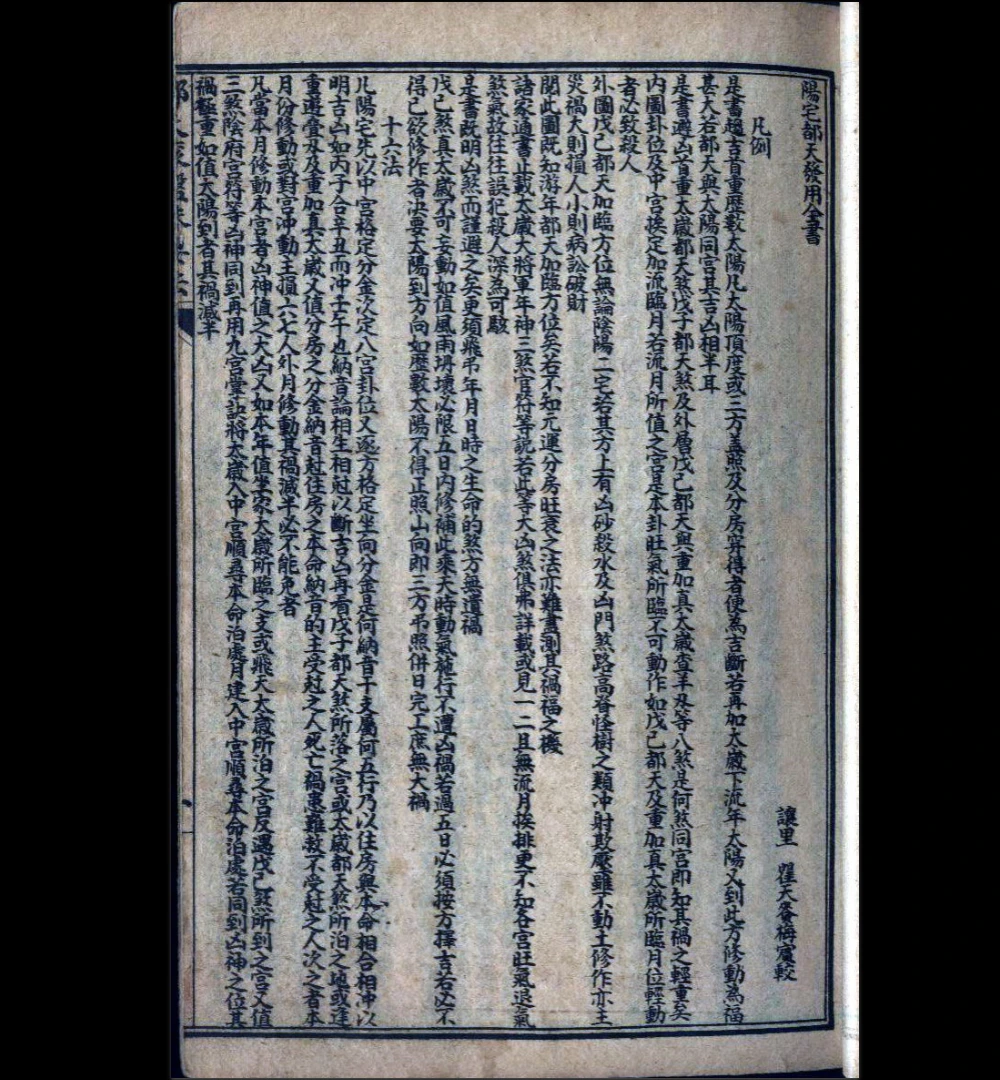 陽宅都天發用全書
讓里 瞿天賚梅窗較
凡例
是書趨吉首重歷數太陽凡太陽頂度或三方盖照及分房穿得者便為吉斷若再加太歲下流年太陽又到此方修動為福
甚大若都天與太陽同宮其吉凶相半耳
是書避凶首重太歲都天煞戊子都天煞及外層戊己都天與重加真太歲查羊刃等八煞是何煞同宮即知其禍之輕重矣
內圖卦位及中宮挨定加流臨月若流月所值之宮是本卦旺氣所臨不可動作如戊己都天及重加真太歲所臨月位輕動
者必致殺人
外圖戊己都天加臨方位無論陰陽二宅若其方上有凶砂殺水及凶門煞路高脊怪樹之類冲射欺壓雖不動土修作亦主
災禍大則損人小則病訟破財
閱此圖既知游年都天加臨方位矣若不知元運分房旺衰之法亦難盡測其禍福之機
諸家通書止載太歲大將軍年神三煞官符等説若此等大凶煞俱弗詳載或見一二且無流月挨排更不知各宮旺氣退氣
煞氣故往往誤犯殺人深為可駭
是書既明凶煞而謹避之矣更須飛弔年月日時之生命的煞方無遺禍
戊己煞真太歲不可妄動如值風雨坍壞必限五日內修補此乘天時動氣施行不遭凶禍若過五日必須按方擇吉若必不
得已欲修作者决要太陽到方向如歷數太陽不得正照山向即三方弔照併日完工庶無大禍
十六法
凡陽宅先以中宮格定分金次定八宮卦位又逐方格定坐向分金是何納音干支屬何五行乃以住房與本命相合相冲以
明吉凶如丙子合辛丑而冲壬午也納音論相生相尅以斷吉凶再看戊子都天煞所落之宮或太歲都天煞所泊之地或逢
重遊疊及及重加真太歲又值分房之分金納音尅住房之本命納音的主受尅之人死亡禍患難救不受尅之人次之者本
月份修動或對宮冲動主損六七人外月修動其禍減半必不能免者
凡當本月修動本宮者凶神值之大凶又如本年值坐家太歲所臨之支或飛天太歲所泊之宮及遇戊己煞所到之宮又值
三煞陰府官符等凶神同到再用九宮掌訣將太歲入中宮順尋本命泊處月建入中宮順尋本命泊處若同到凶神之位其
禍極重如值太陽到者其禍減半